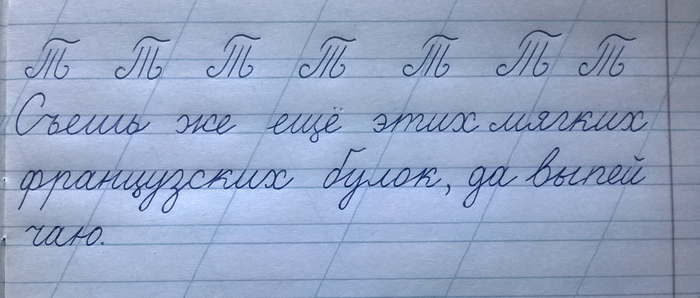 Т Т Т Т Т Т Т
Съешь же ещё этих мягких
французских булок, да выпей
чаю.